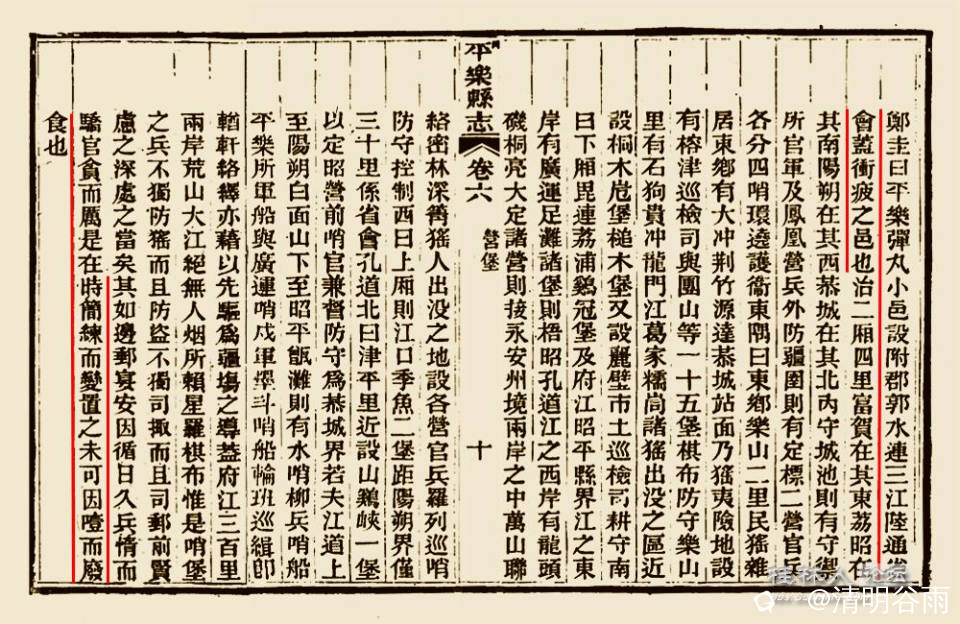 鄭圭曰平樂彈丸小邑設附郡郭水連三江陸通省
會蓋衝疲之邑也治二厢四里富賀在其東荔昭在
其南陽朔在其西恭城在其北內守城池則有守禦
所官軍及鳳凰營兵外防疆圉則有定標二營官兵
各分四哨環遶護衞東隅曰東鄉樂山二里民猺雜
居東鄉有大冲荆竹源達恭城站面乃猺夷險地設
有榕津巡檢司與團山等一十五堡棋布防守樂山
里有石狗貴冲龍門江葛家糯尚諸猺出没之區近
設桐木㞳堡槌木堡又設麗壁市土巡檢司耕守南
曰下厢毘連荔浦鷄冠堡及府江昭平縣界江之東
岸有廣運足灘諸堡則梧昭孔道江之西岸有龍頭
磯桐亮大定諸營則接永安州境兩岸之中萬山聯
平樂縣志
卷六
營堡
十
絡密林深箐猺人出没之地設各營官兵羅列巡哨
防守控制西曰上厢則江口季魚二堡距陽朔界僅
三十里係省會孔道北曰津平里近設山鷄峽一堡
以定昭營前哨官兼督防守爲恭城界若夫江道上
至陽朔白面山下至昭平甑灘則有水哨柳兵哨船
平樂所軍船與廣運哨戍軍擇斗哨船輪班巡緝卽
輶軒絡繹亦藉以先驅爲疆塲之導蓋府江三百里
兩岸荒山大江絕無人烟所賴星羅棋布惟是哨堡
之兵不獨防猺而且防盜不獨司掫而且司郵前賢
慮之深處之當矣其如邊郵宴安因循日久兵惰而
驕官貪而厲是在時簡練而變置之未可因噎而廢
食也
桂林人论坛
@清明谷雨